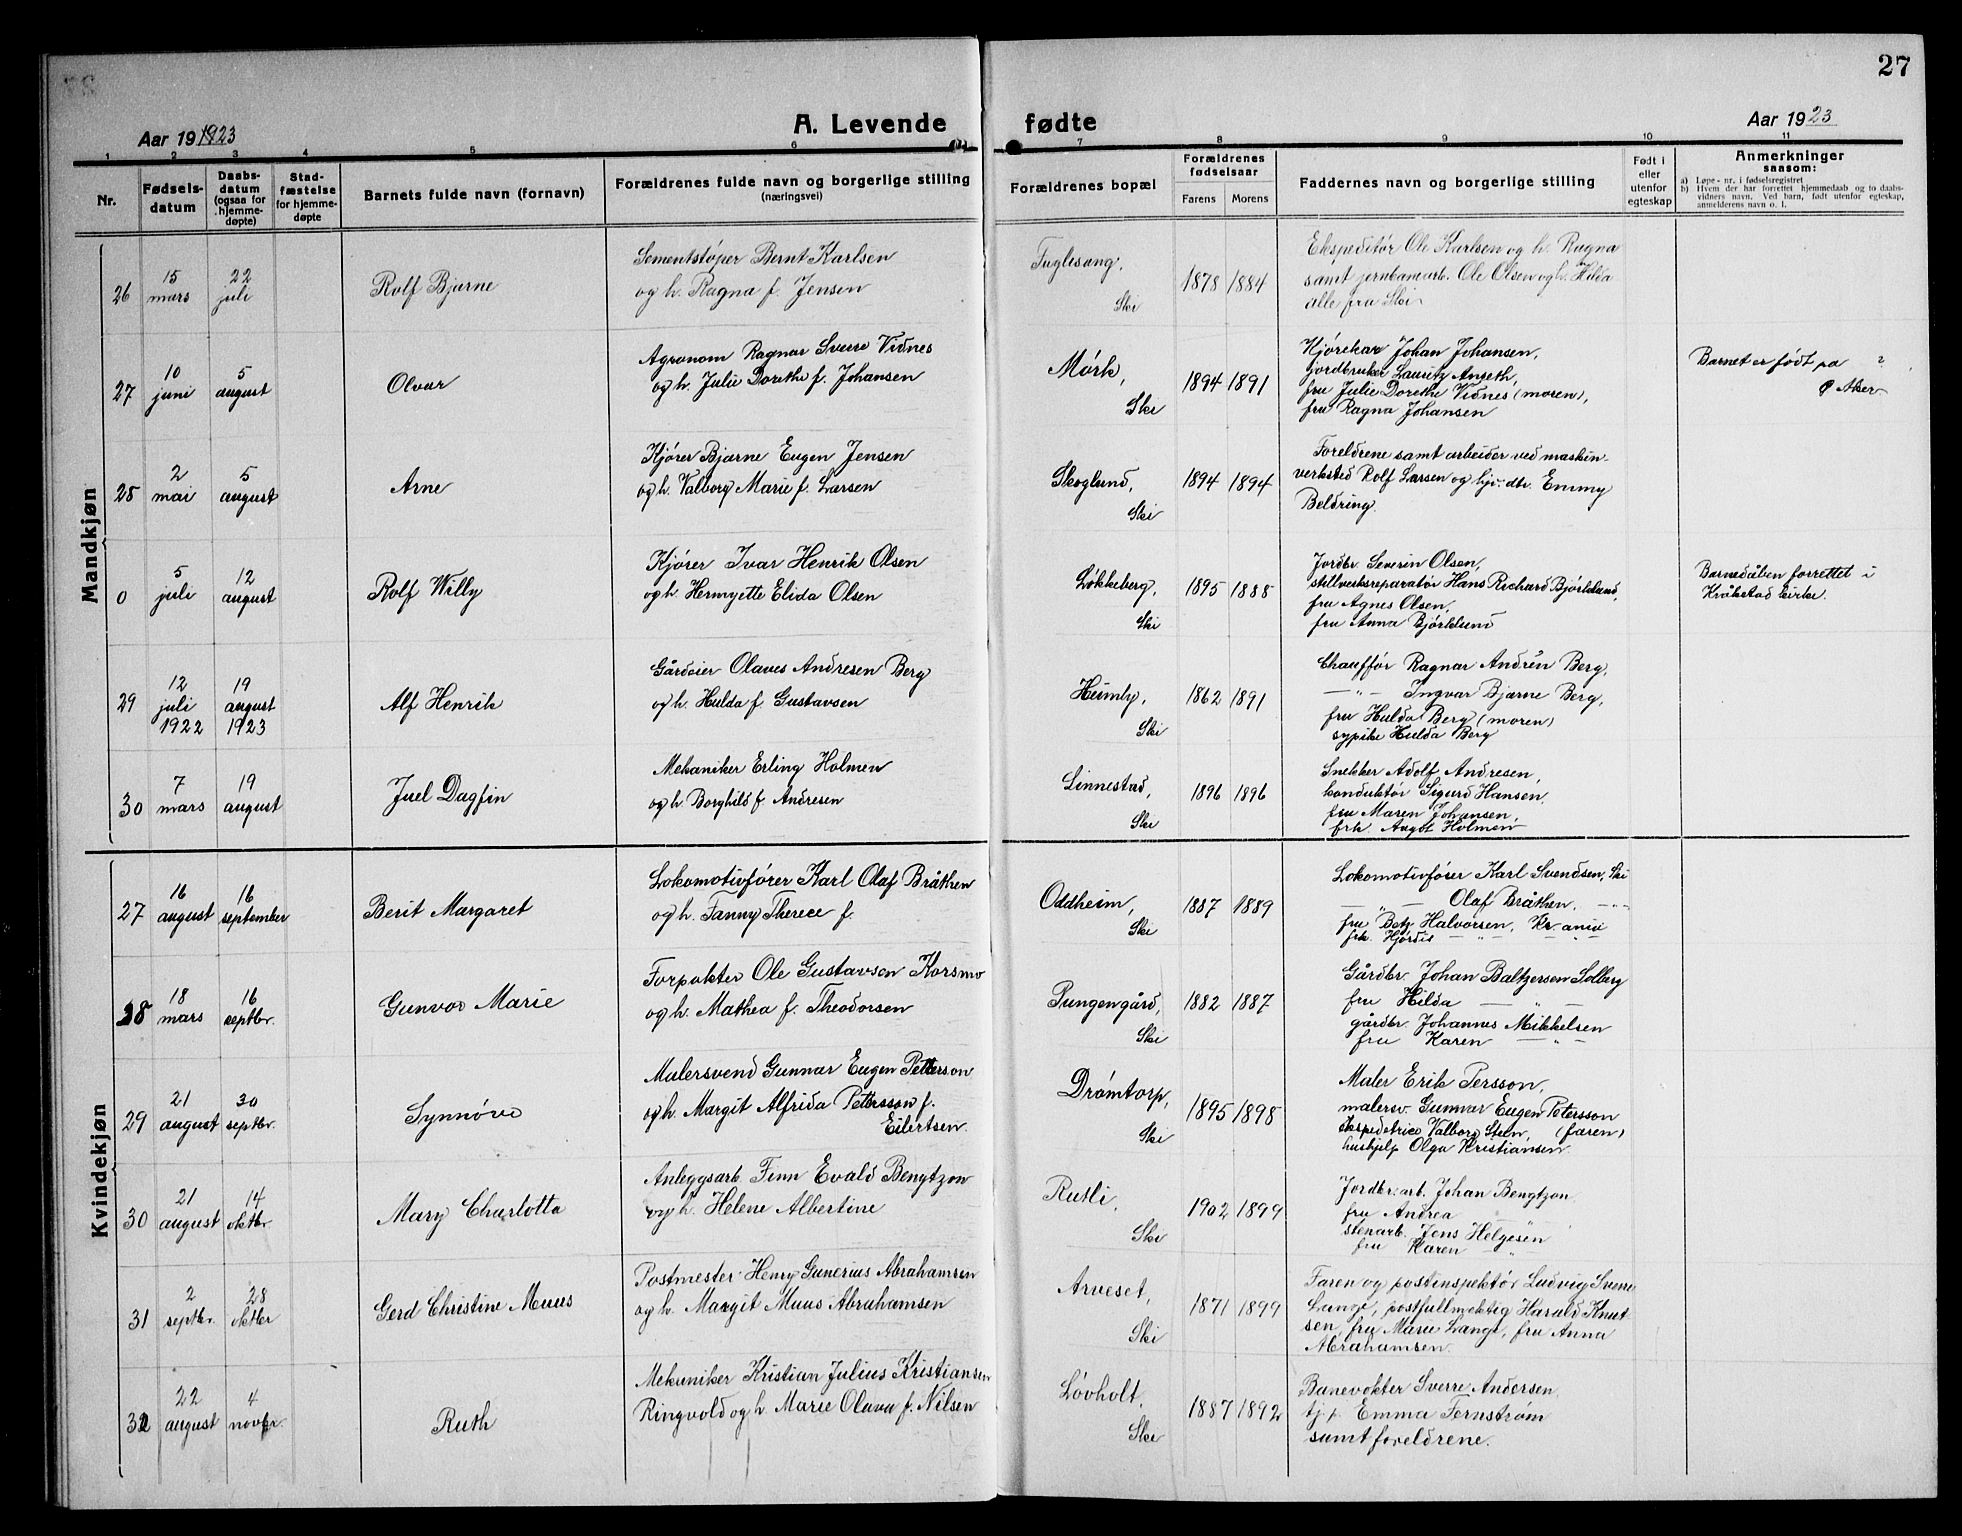 27
A. Levende fødte
Aar 191923
Aar 1923
1 2 3 4 5 6 7 8 9 10 11
Nr.
Fødsels-
datum
Daabs-
datum
(ogsaa for
hjemme-
døpte)
Stad-
fæstelse
for hjemme-
døpte
Barnets fulde navn (fornavn)
Forældrenes fulde navn og borgerlige stilling
(næringsvei)
Forældrenes bopæl
Forældrenes
fødselsaar
Farens Morens
Faddernes navn og borgerlige stilling
Født i
eller
utenfor
egteskap
Anmerkninger
saasom:
a) Løpe-nr. i fødselsregistret
b) Hvem der har forrettet hjemmedaab og to daabs-
vidners navn. Ved barn, født utenfor egteskap,
anmelderens navn o. l.
Mandkjøn
26
15
mars
22
juli
Rolf Bjarne
Sementstøper Bernt Karlsen
og h. Ragna f. Jensen
Fuglesang,
Ski
1878 1884
Ekspeditør Ole Karlsen og h. Ragna
samt jernbanarb. Ole Olsen og h. Hilda
alle fra Ski
27
10
juni
5
august
Olvar
Agronom Ragnar Sverre Vidnes
og h. Julie Dorethe f. Johansen
Mørk,
Ski
1894 1891
Kjørekar Johan Johansen,
jordbruker Lauritz Anseth,
fru Julie Dorethe Vidnes (moren),
fru Ragna Johansen
Barnet er født på ?
Aker
28
2
mai
5
august
Arne
Kjører Bjarne Eugen Jensen
og h. Valborg Marie f. Larsen
Skoglund,
Ski
1894 1894
Foreldrene samt arbeider ved maskin-
verksted Rolf Larsen og hjv. dtr. Emmy
Beldring.
0
5
juli
12
august
Rolf Willy
Kjører Ivar Henrik Olsen
og h. Hermyette Elida Olsen
Løkkeberg,
Ski
1895 1888
Jordbr Severin Olsen,
stillverksreparatør Hans Richard Bjørklund,
fru Agnes Olsen,
fru Anna Bjørklund
Barnedåben forrettet i
Kråkstad kirke.
29
12
juli
1922
19
august
1923
Alf Henrik
Gårdeier Olaves Andresen Berg
og h. Hulda f. Gustavsen
Heimly,
Ski
1862 1891
Chauffør Ragnar Andrèn Berg,
—"— Ingvar Bjarne Berg,
fru Hulda Berg (moren)
sypike Hulda Berg
30
7
mars
19
august
Juel Dagfin
Mekaniker Erling Holmen
og h. Borghild f. Andresen
Linnestad,
Ski
1896 1896
Snekker Adolf Andresen,
konduktør Sigurd Hansen,
fru Maren Johansen,
frk. Angot Holmen
Kvindekjøn
27
16
august
16
september
Berit Margaret
Lokomotivfører Karl Olaf Bråthen
og h. Fanny Therece f.
Oddheim,
Ski
1887 1889
Lokomotivfører Karl Svendsen, Ski
—"— Olaf Bråthen, —"—
fru Betz Halvorsen, Kr.ania
frk. Hjørdis —"— "
28
18
mars
16
septbr.
Gunvor Marie
Forpakter Ole Gustavsen Korsmo
og h. Mathea f. Theodorsen
Pungengård,
Ski
1882 1887
Gårdbr Johan Baltzersen Solberg
fru Hilda —"—
gårdbr. Johannes Mikkelsen
fru Karen —"—
29
21
august
30
septbr.
Synnøve
Malersvend Gunnar Eugen Pettersson
og h. Margit Alfrida Pettersson f.
Eilertsen.
Drømtorp,
Ski
1895 1898
Maler Erik Persson,
malersv. Gunnar Eugen Petersson
ekspeditrice Valborg Steen, (faren)
hushjelp Olga Kristiansen
30
21
august
14
oktbr.
Mary Charlotta
Anleggsarb. Finn Evald Bengtzon
og h. Helene Albertine
Rutli,
Ski
1902 1899
Jordbr. arb. Johan Bengtzon
fru Andrea
stenarb. Jens Helgesen
fru Karen "
31
2
septbr.
28
oktber
Gerd Christine Muus
Postmester Henry Gunerius Abrahamsen
og h. Margit Muus Abrahamsen
Arveset,
Ski
1871 1899
Faren og postinspektør Ludvig Sverre
Lange, postfullmektig Harald Knut-
sen, fru Marie Lange, fru Anna
Abrahamsen.
32
22
august
4
novbr.
Ruth
Mekaniker Kristian Julius Kristiansen
Ringvold og h. Marie Olava f. Nilsen
Løvholt,
Ski
1887 1892
Banevokter Sverre Andersen
tj.p. Emma Fernstrøm
samt foreldrene.